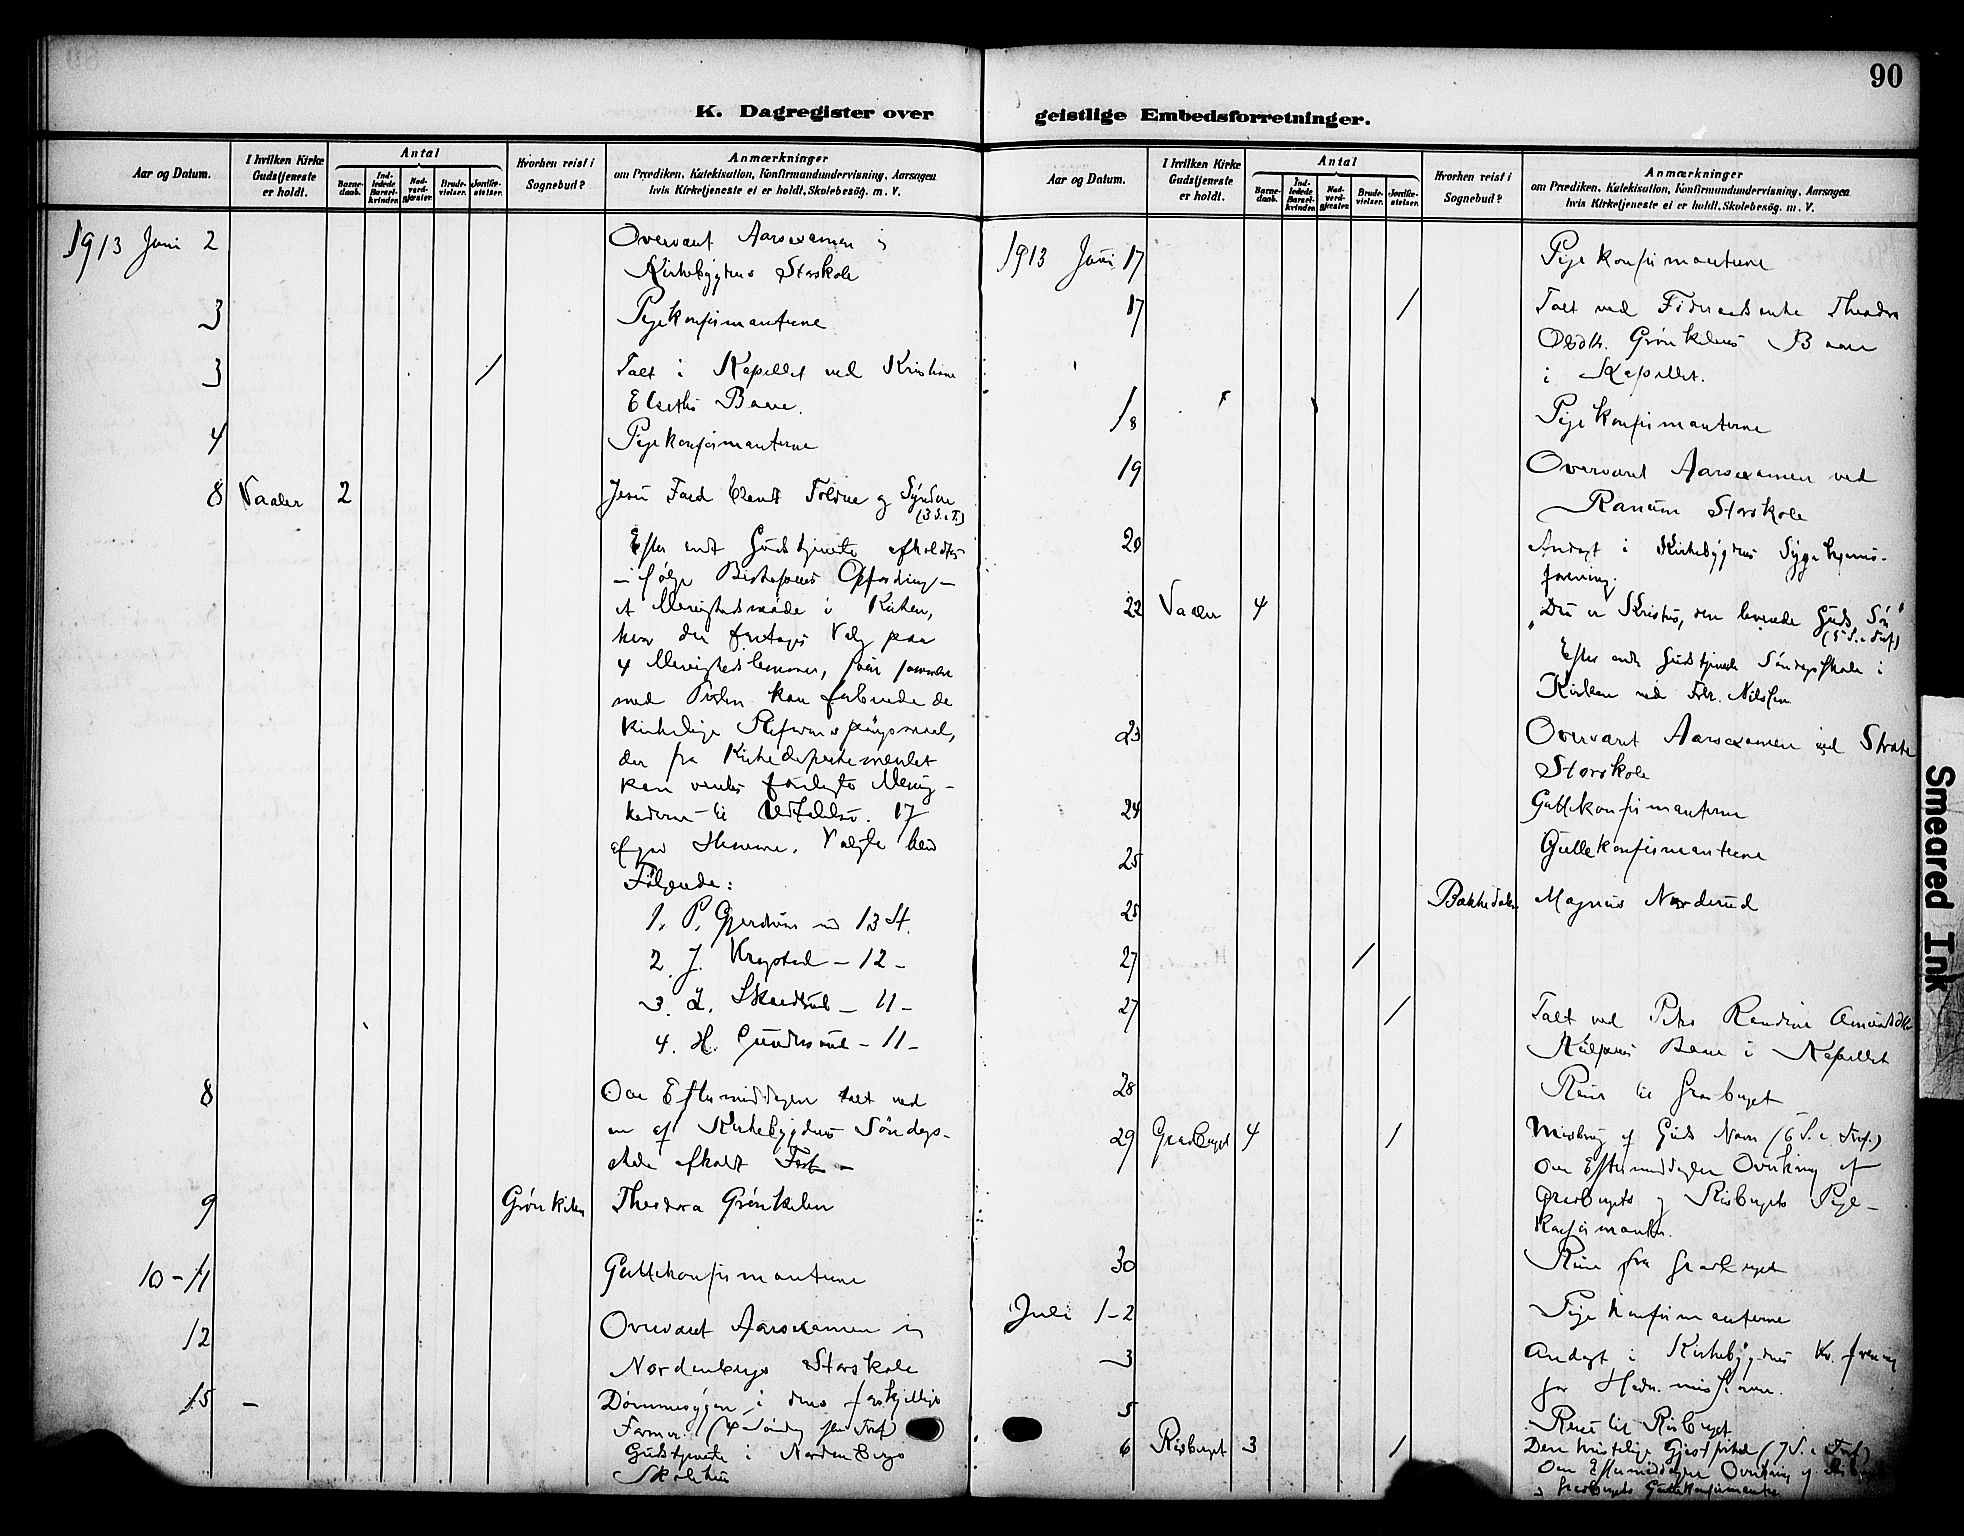 90
K. Dagregister over
geistlige Embedsforretninger.
Aar og Datum.
I hvilken Kirke
Gudstjeneste
er holdt.
Antal
Barne-
daab.
Ind-
ledede
Barsel-
kvinder.
Nad-
verd-
gjæster.
Brude-
vielser.
Jordfæ-
stelser.
Hvorhen reist i
Sognebud?
Anmærkninger
om Prædiken, Katekisation, Konfirmandundervisning, Aarsagen
hvis Kirketjeneste ei er holdt, Skolebesøg. m. V.
1913 Juni 2 Overvaret Aarsexamen i
Kirkebygdens Storskole
3 Pigekonfirmanterne
3 / Talt i Kapellet ved Kristiane
Elseths Baare.
4 Pigekonfirmanterne
8 Vaaler 2 Jesu Færd blandt Toldne og Syndere
(3 S. e. T.)
Efter endt Gudstjeneste afholdtes
– ifølge Biskopens Opfordring –
et Menighedsmøde i Kirken,
hvor der foretages Valg paa
4 Menighedslemmer, som sammen
med Præsten kan forberede de
kirkelige Reformspørgsmaal,
der fra Kirkedepartementet
kan ventes forelagte Menig-
hederne til Udtalelse. 17
afgav Stemme. Valgte blev
Følgende:
1. P. Gjerdrum med 13 St.
2. J. Kragstad – 12 –
3. L. Skardsrud – 11 –
4. H. Gundersrud – 11 –
8 Om Eftermiddagen talt ved
en af Kirkebygdens Søndags-
skole afholdt Fest –
9 Grønkilen Theodora Grønkilen
10 – 11 Guttekonfirmanterne
12 Overværet Aarsexamen i
Nordenbergs Storskole
15 – Dømmesygen i dens forskjellige
Former (4 Søndag efter Tref)
Gudstjeneste i Nordenbergs
Skolehus
Aar og Datum.
I hvilken Kirke
Gudstjeneste
er holdt.
Antal
Barne-
daab.
Ind-
ledede
Barsel-
kvinder.
Nad-
verd-
gjæster.
Brude-
vielser.
Jordfæ-
stelser.
Hvorhen reist i
Sognebud?
Anmærkninger
om Prædiken, Katekisation, Konfirmandundervisning, Aarsagen
hvis Kirketjeneste ei er holdt, Skolebesøg. m. V.
1913 Juni 17 Pigekonfirmanterne
17 / Talt ved Theodora
Grønkilens Baare
i Kapellet.
18 Pigekonfirmanterne
19 Overværet Aarsexamen ved
Ranum Storskole
20 Andagt i Kirkebygdens Sygehjems-
forening.
22 Vaaler 4 "Du er Kristus, den levende Guds Søn"
(5 S. e. Tref)
Efter endt Gudstjeneste Søndagsskole i
Kirken ved Fdr. Nilssen
23 Overværet Aarsexamen ved
Storskole
24 Guttekonfirmanterne
25 Guttekonfirmanterne
25 Magnus Norderud
27 /
27 / Talt ved Randine
Baare i Kapellet
28 Reise til Gravberget
29 Gravberget 4 / Misbrug af Guds Navn (6 S. e. Tref.)
Om Eftermiddagen Overhøring af
Gravbergets og Risbergets Pige-
konfirmanter.
30 Reise fra Gravberget
Juli 1–2 Pigekonfirmanterne
3 Andagt i Kirkebygdens Kv. forening
for Hedn. missionen.
5 Reise til Risberget
6 Risberget 3 / Den kristelige (7 S. e. Tref)
Om Eftermiddagen Overhøring af
Gravbergets Guttekonfirmanter
Smeared Ink